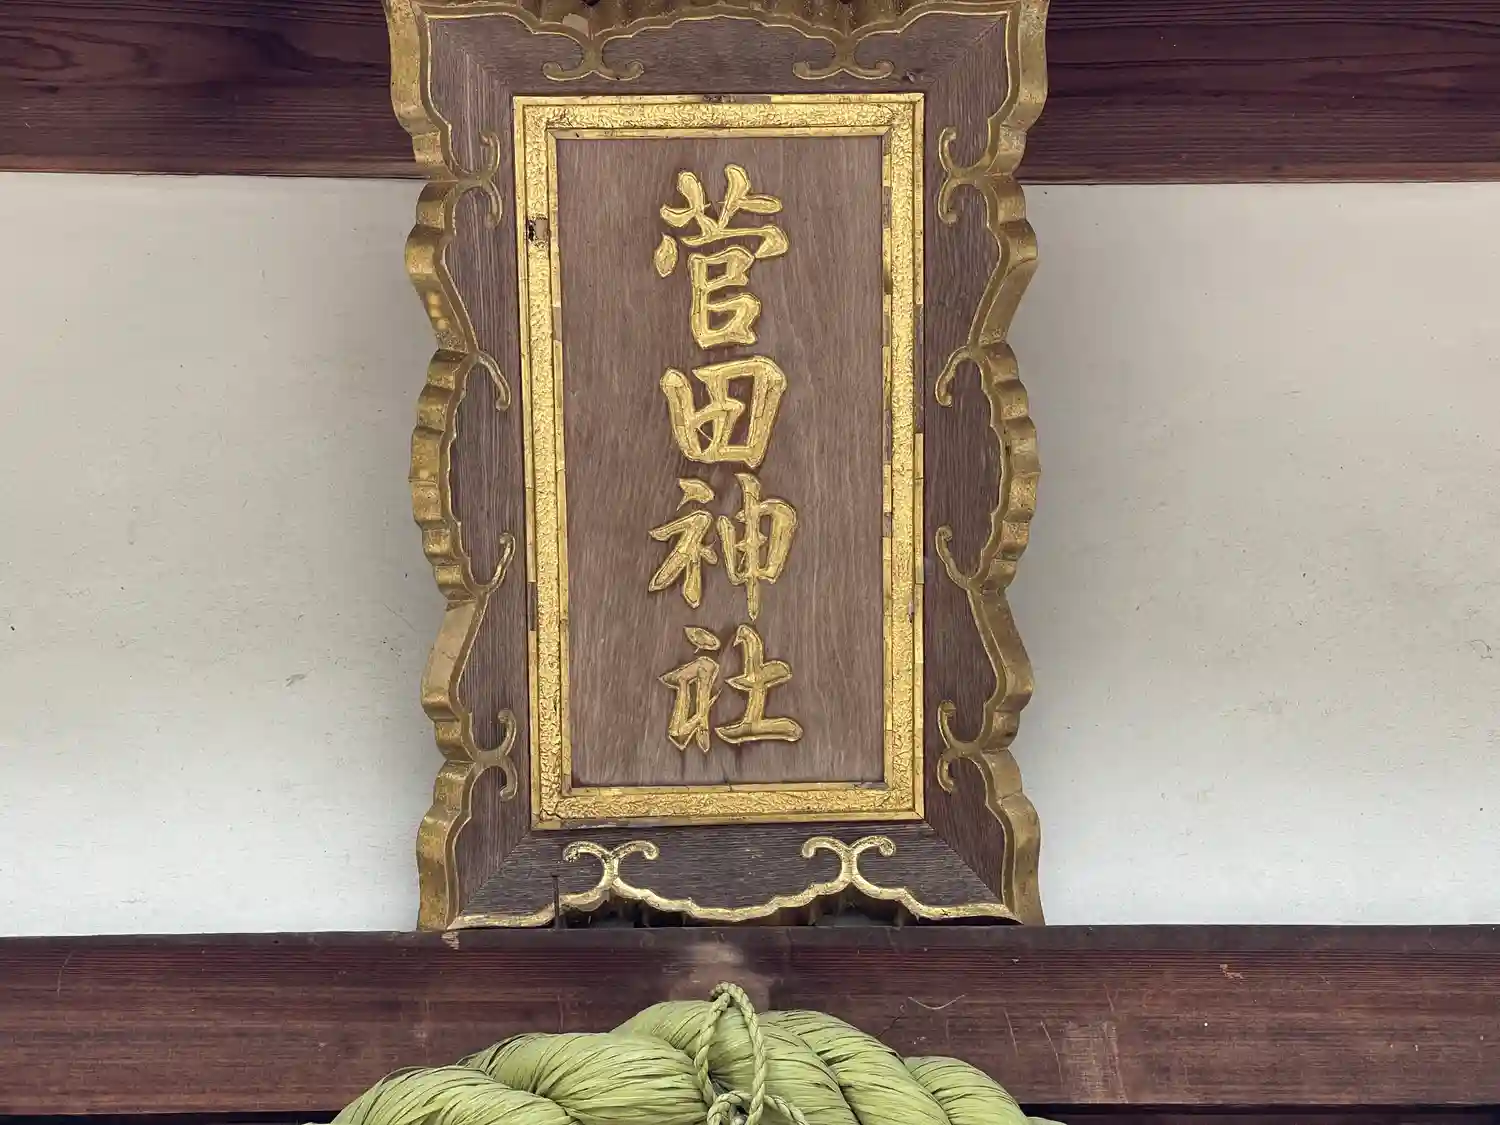 菅田神社